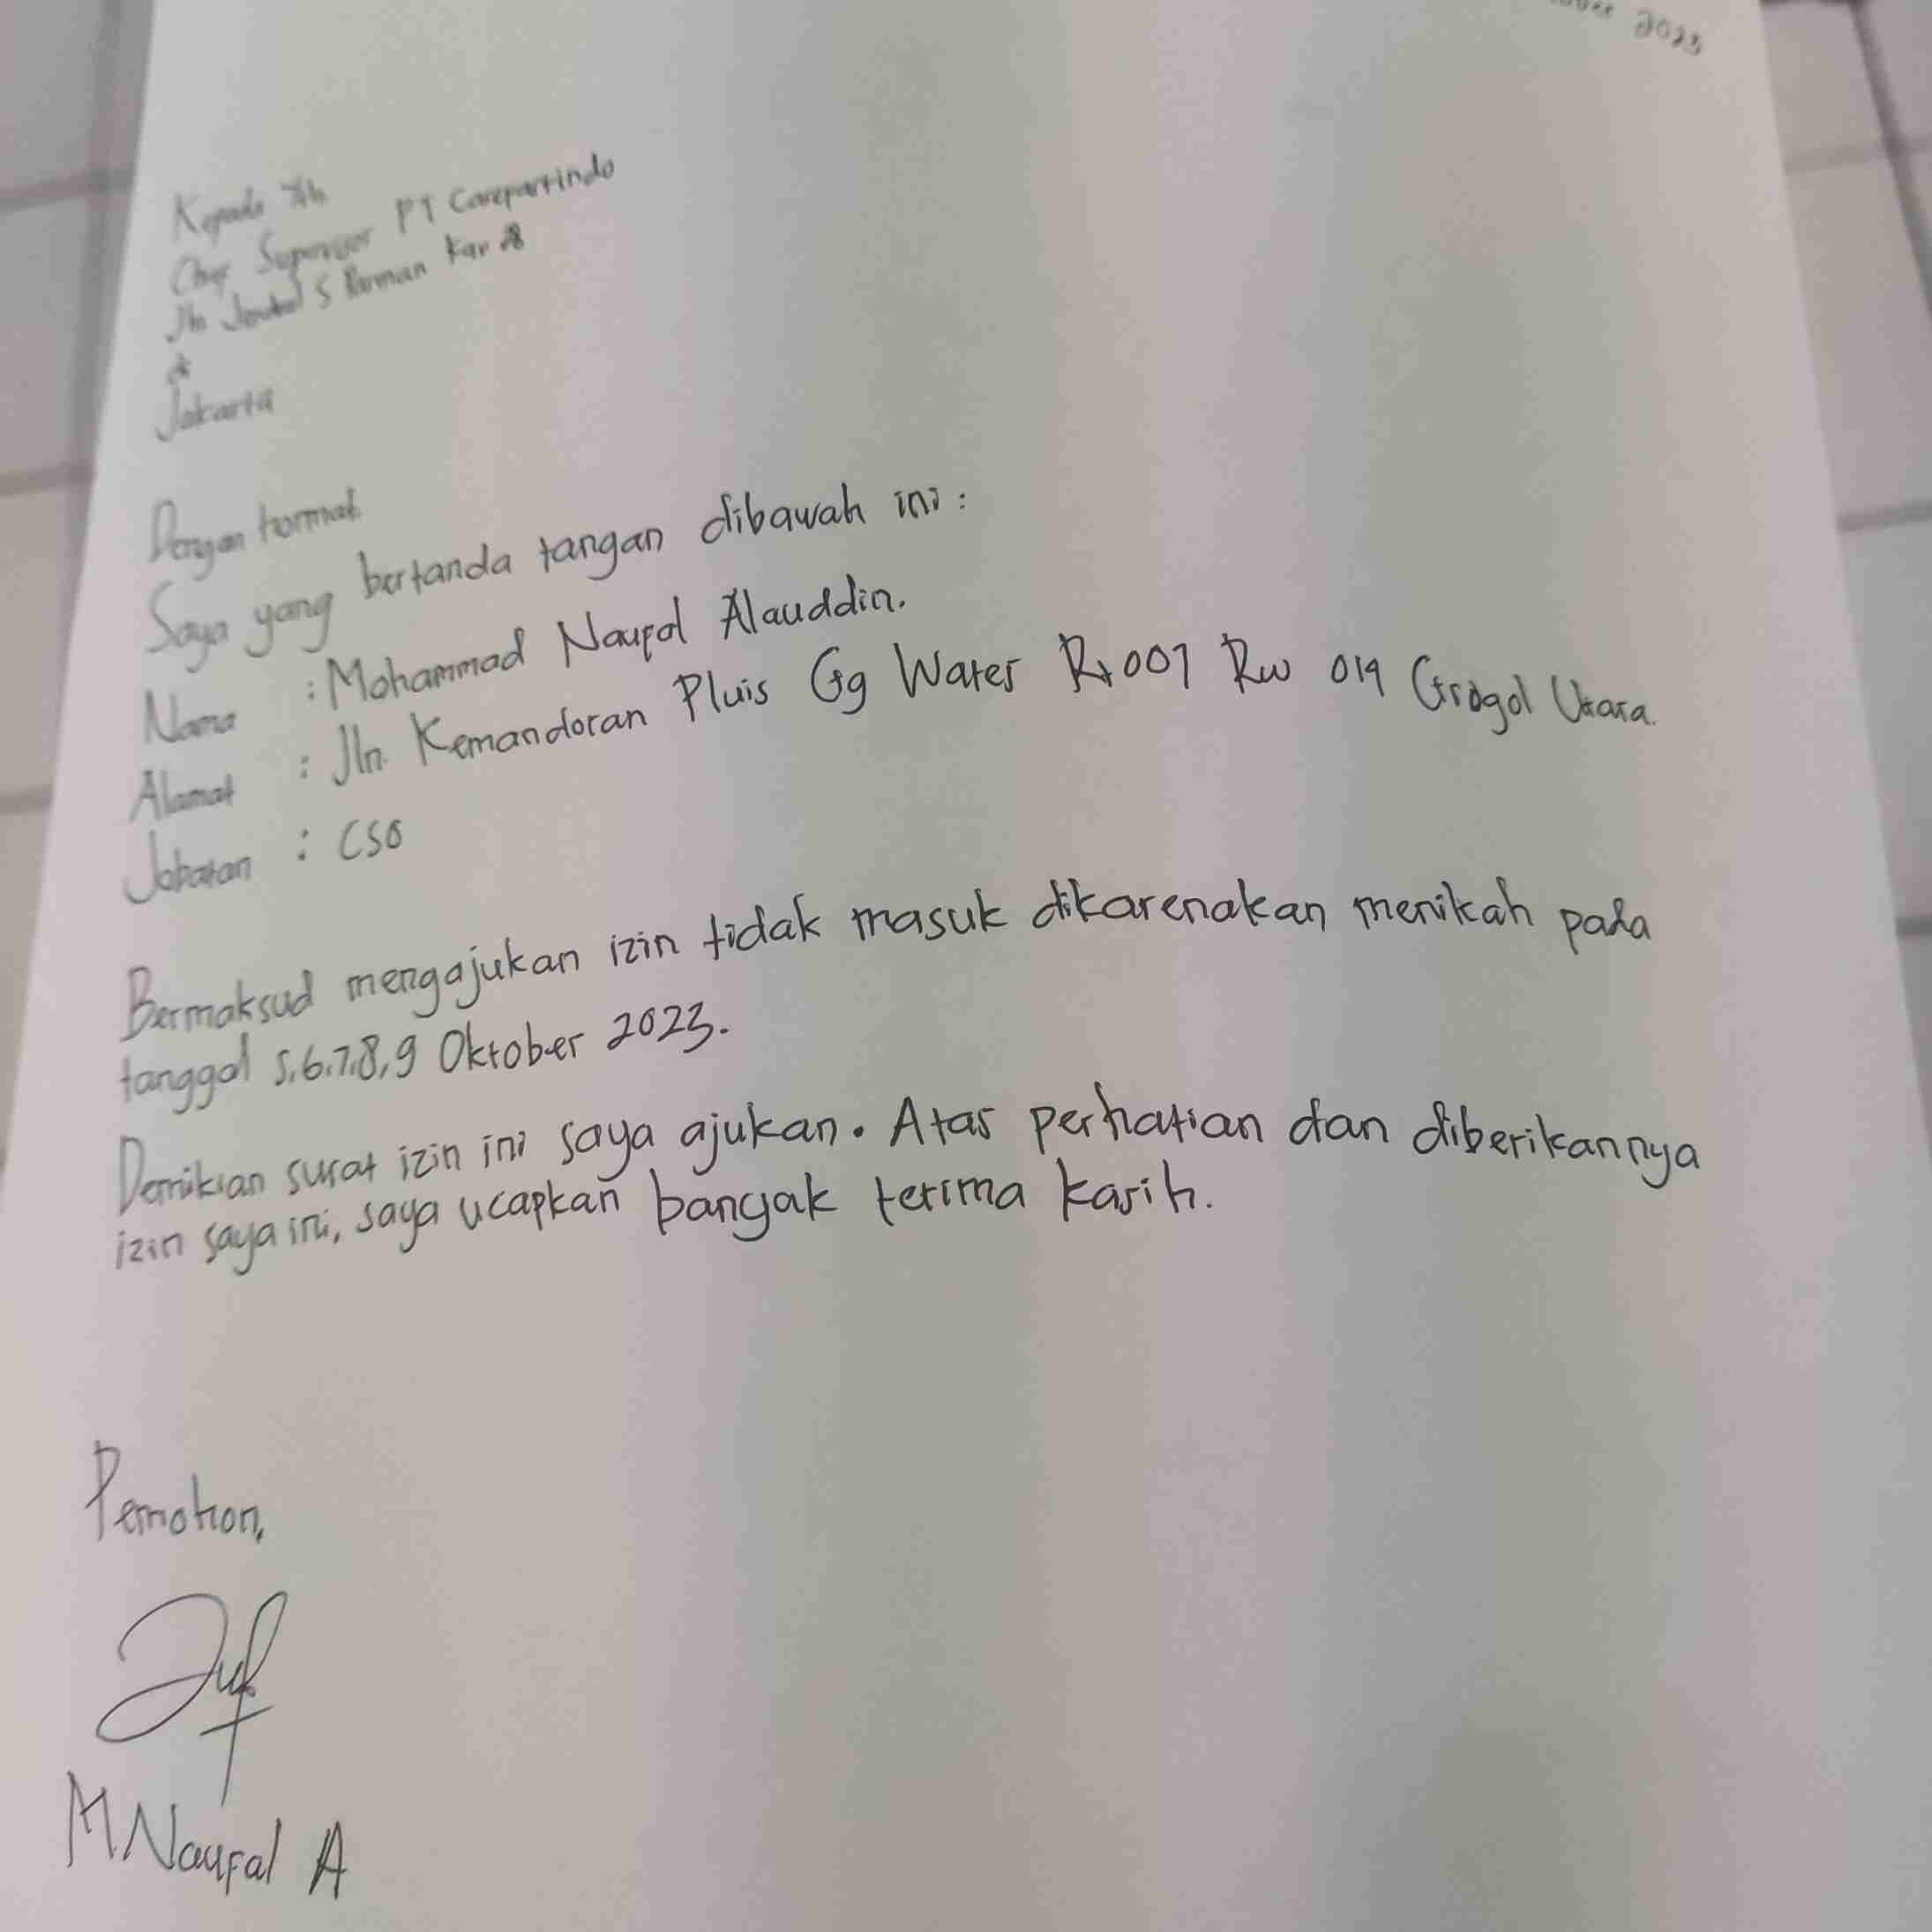 2023
Kepada Yth
Chief Supervisor PT Carepartindo
Jln Jendral S Parman Kav
di
Jakarta
Dengan hormat
Saya yang bertanda tangan dibawah ini :
Nama : Mohammad Naufal Alauddin.
Alamat : Jln. Kemandoran Pluis Gg Water Rt 007 Rw 014 Grogol Utara.
Jabatan : CSO
Bermaksud mengajukan izin tidak masuk dikarenakan menikah pada
tanggal 5,6,7,8,9 Oktober 2023.
Demikian surat izin ini saya ajukan. Atas perhatian dan diberikannya
izin saya ini, saya ucapkan banyak terima kasih.
Pemohon,
M Naufal A